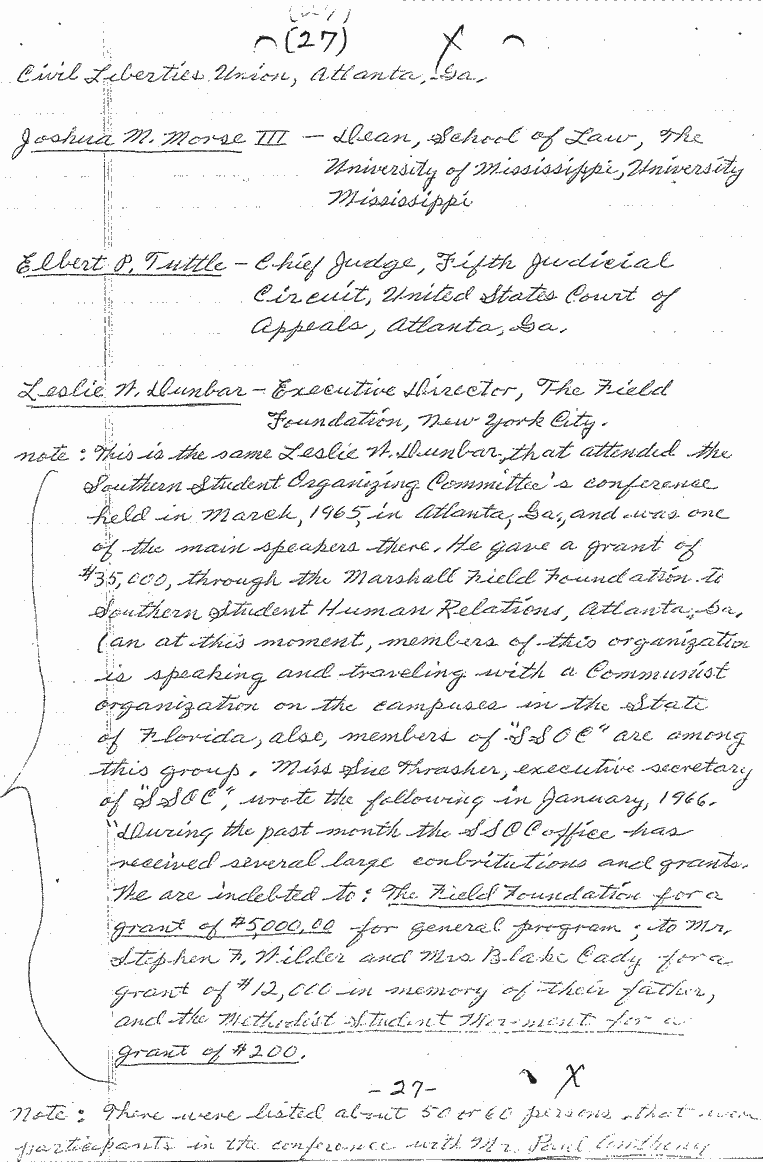 (27)
(27) X
Civil Liberties Union, Atlanta, Ga.
Joshua M. Morse III — Dean, School of Law, The
University of Mississippi, University
Mississippi
Elbert P. Tuttle - Chief Judge, Fifth Judicial
Circuit, United States Court of
Appeals, Atlanta, Ga.
Leslie W. Dunbar - Executive Director, The Field
Foundation, New York City.
note: This is the same Leslie W. Dunbar, that attended the
Southern Student Organizing Committee's conference
held in March, 1965, in Atlanta, Ga., and was one
of the main speakers there. He gave a grant of
$35,000, through the Marshall Field Foundation to
Southern Student Human Relations, Atlanta, Ga.
(an at this moment, members of this organization
is speaking and traveling with a Communist
organization on the campuses in the State
of Florida, also, members of "SSOC" are among
this group. Miss Sue Thrasher, executive secretary
of "SSOC", wrote the following in January, 1966.
"During the past month the SSOC office has
received several large conbritutions and grants.
We are indebted to: The Field Foundation for a
grant of $5,000.00 for general program; to Mr.
Stephen F. Wilder and Mrs Blake Cady for a
grant of $12,000 in memory of their father,
and the Methodist Student Movement for a
grant of $200.
-27- X
Note: There were listed about 50 or 60 persons that were
participants in the conference with Mr. Paul Anthony